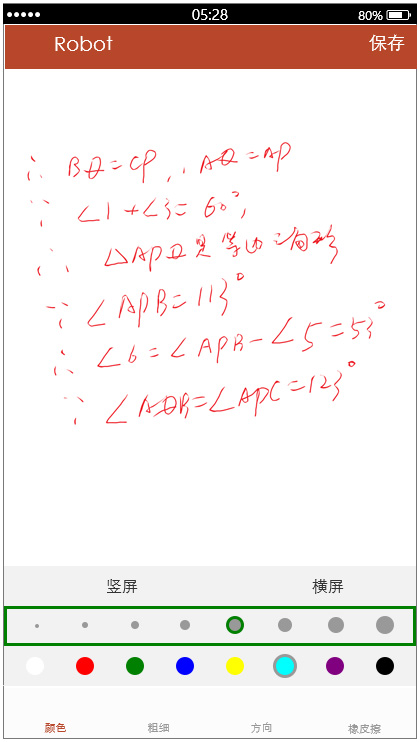 05:28 80%
Robot 保存
∴ BQ=CP, ∴AQ=AP
∵ ∠1+∠3=60°,
∴ △APQ是等边三角形
∵ ∠APB=113°
∴ ∠6=∠APB-∠5=53°
∵ ∠AQB=∠APC=123°
竖屏 横屏
颜色 粗细 方向 橡皮擦